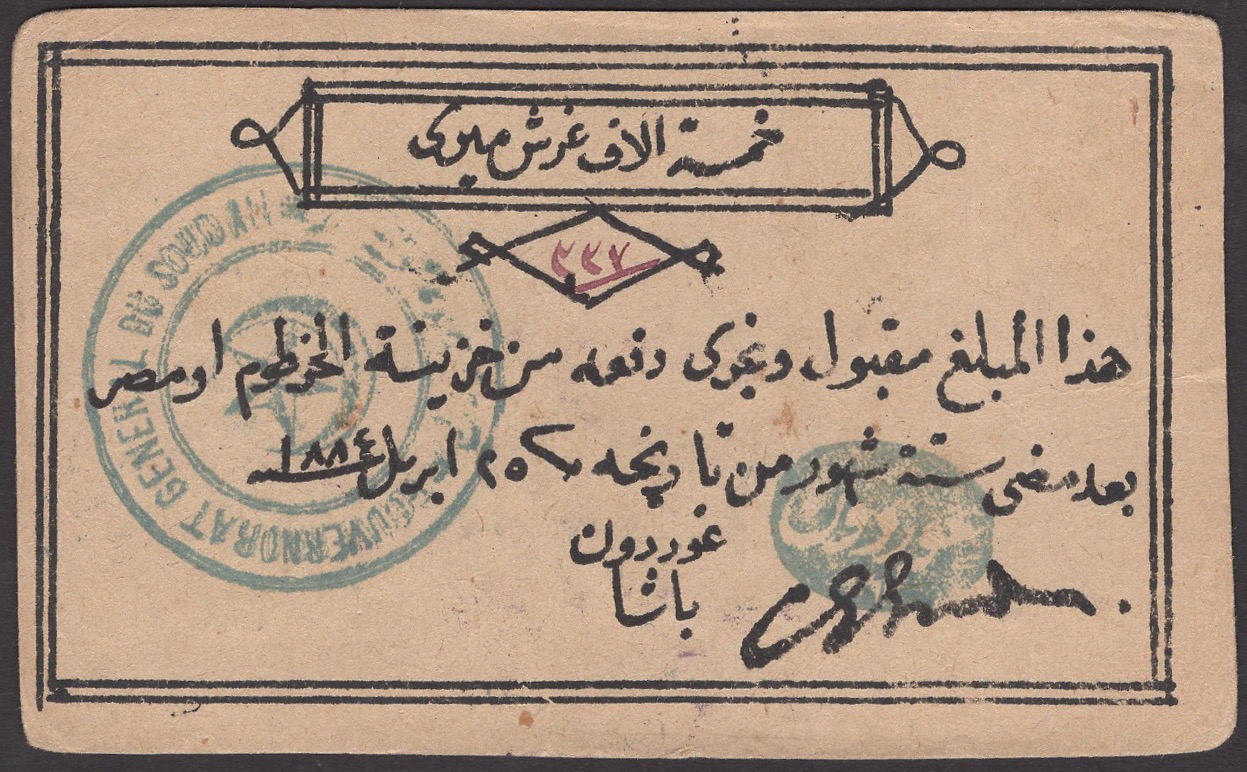 خمسة الاف غرش ميرى
٢٢٧
هذا المبلغ مقبول ويجرى دفعه من خزينة الخرطوم او مصر
بعد مضى ستة شهور من تاريخه ٢٥ ابريل ١٨٨٤
غوردون
باشا
GOUVERNORAT GENERAL DU SOUDAN